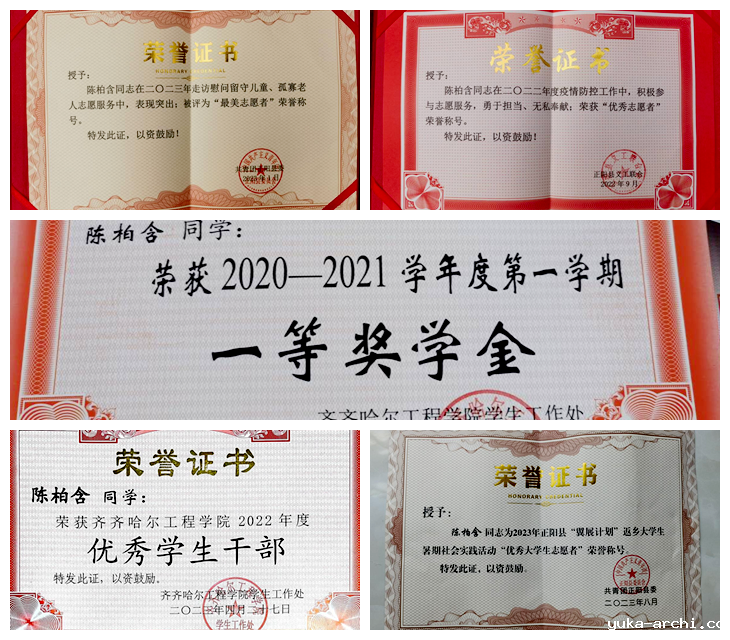 荣誉证书
HONORARY CREDENTIAL
授予:
陈柏含同志在二〇二三年走访慰问留守儿童、孤寡老
人志愿服务中，表现突出；被评为“最美志愿者”荣誉称
号。
特发此证，以资鼓励！
共青团正阳县委
2023年1月
荣誉证书
授予:
陈柏含同志在二〇二二年度疫情防控工作中，积极参
与志愿服务，勇于担当、无私奉献；荣获“优秀志愿者”
荣誉称号。
特发此证，以资鼓励！
正阳县义工联合
2022年9月
陈柏含 同学：
荣获2020—2021学年度第一学期
一等奖学金
齐齐哈尔工程学院学生工作处
荣誉证书
陈柏含 同学：
荣获齐齐哈尔工程学院2022年度
优秀学生干部
特发此证，以资鼓励。
齐齐哈尔工程学院学生工作处
二〇二三年四月二十七日
学生工作处
荣誉证书
HONORARY CREDENTIAL
授予：
陈柏含 同志为2023年正阳县“翼展计划”返乡大学生
暑期社会实践活动“优秀大学生志愿者”荣誉称号。
特发此证，以资鼓励。
共青团正阳县委
二〇二三年八月
yuka-archi.co